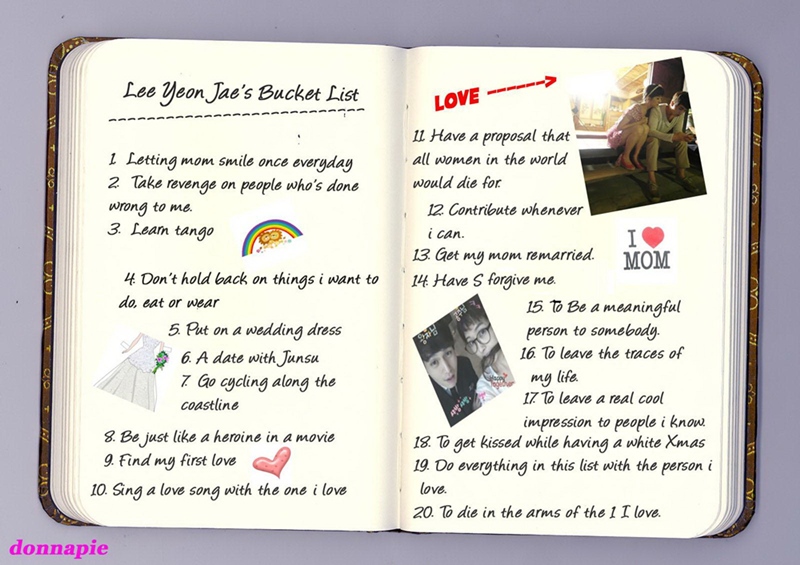 Lee Yeon Jae's Bucket List
1 Letting mom smile once everyday
2. Take revenge on people who's done
wrong to me.
3. Learn tango
4. Don't hold back on things i want to
do, eat or wear
5. Put on a wedding dress
6. A date with Junsu
7 Go cycling along the
coastline
8. Be just like a heroine in a movie
9. Find my first love
10. Sing a love song with the one i love
LOVE ------>
11. Have a proposal that
all women in the world
would die for.
12. Contribute whenever
i can.
13. Get my mom remarried.
I ❤
MOM
14. Have S forgive me.
15. To Be a meaningful
person to somebody.
16. To leave the traces of
my life.
17. To leave a real cool
impression to people i know.
18. To get kissed while having a white Xmas
19. Do everything in this list with the person i
love.
20. To die in the arms of the 1 I love.
donnapie